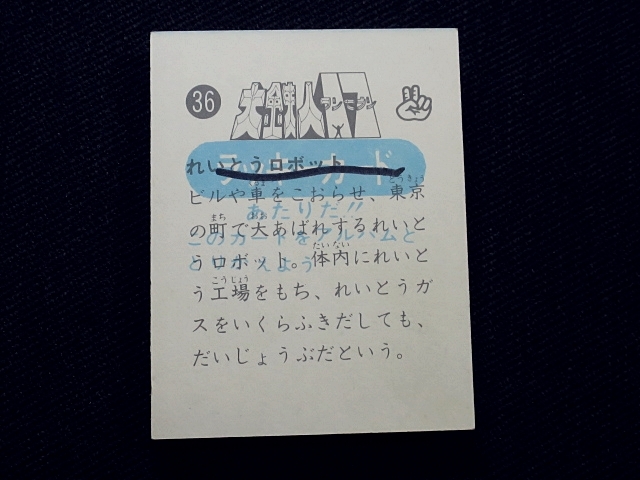 36
大鉄人17
ワンセブン
れいとうロボット
ラッキーカード
ビルや車をこおらせ、東京
あたりだ!!
の町で大あばれするれいと
このカードをアルバムと
うロボット。体内にれいと
とりかえよう
う工場をもち、れいとうガ
スをいくらふきだしても、
だいじょうぶだという。